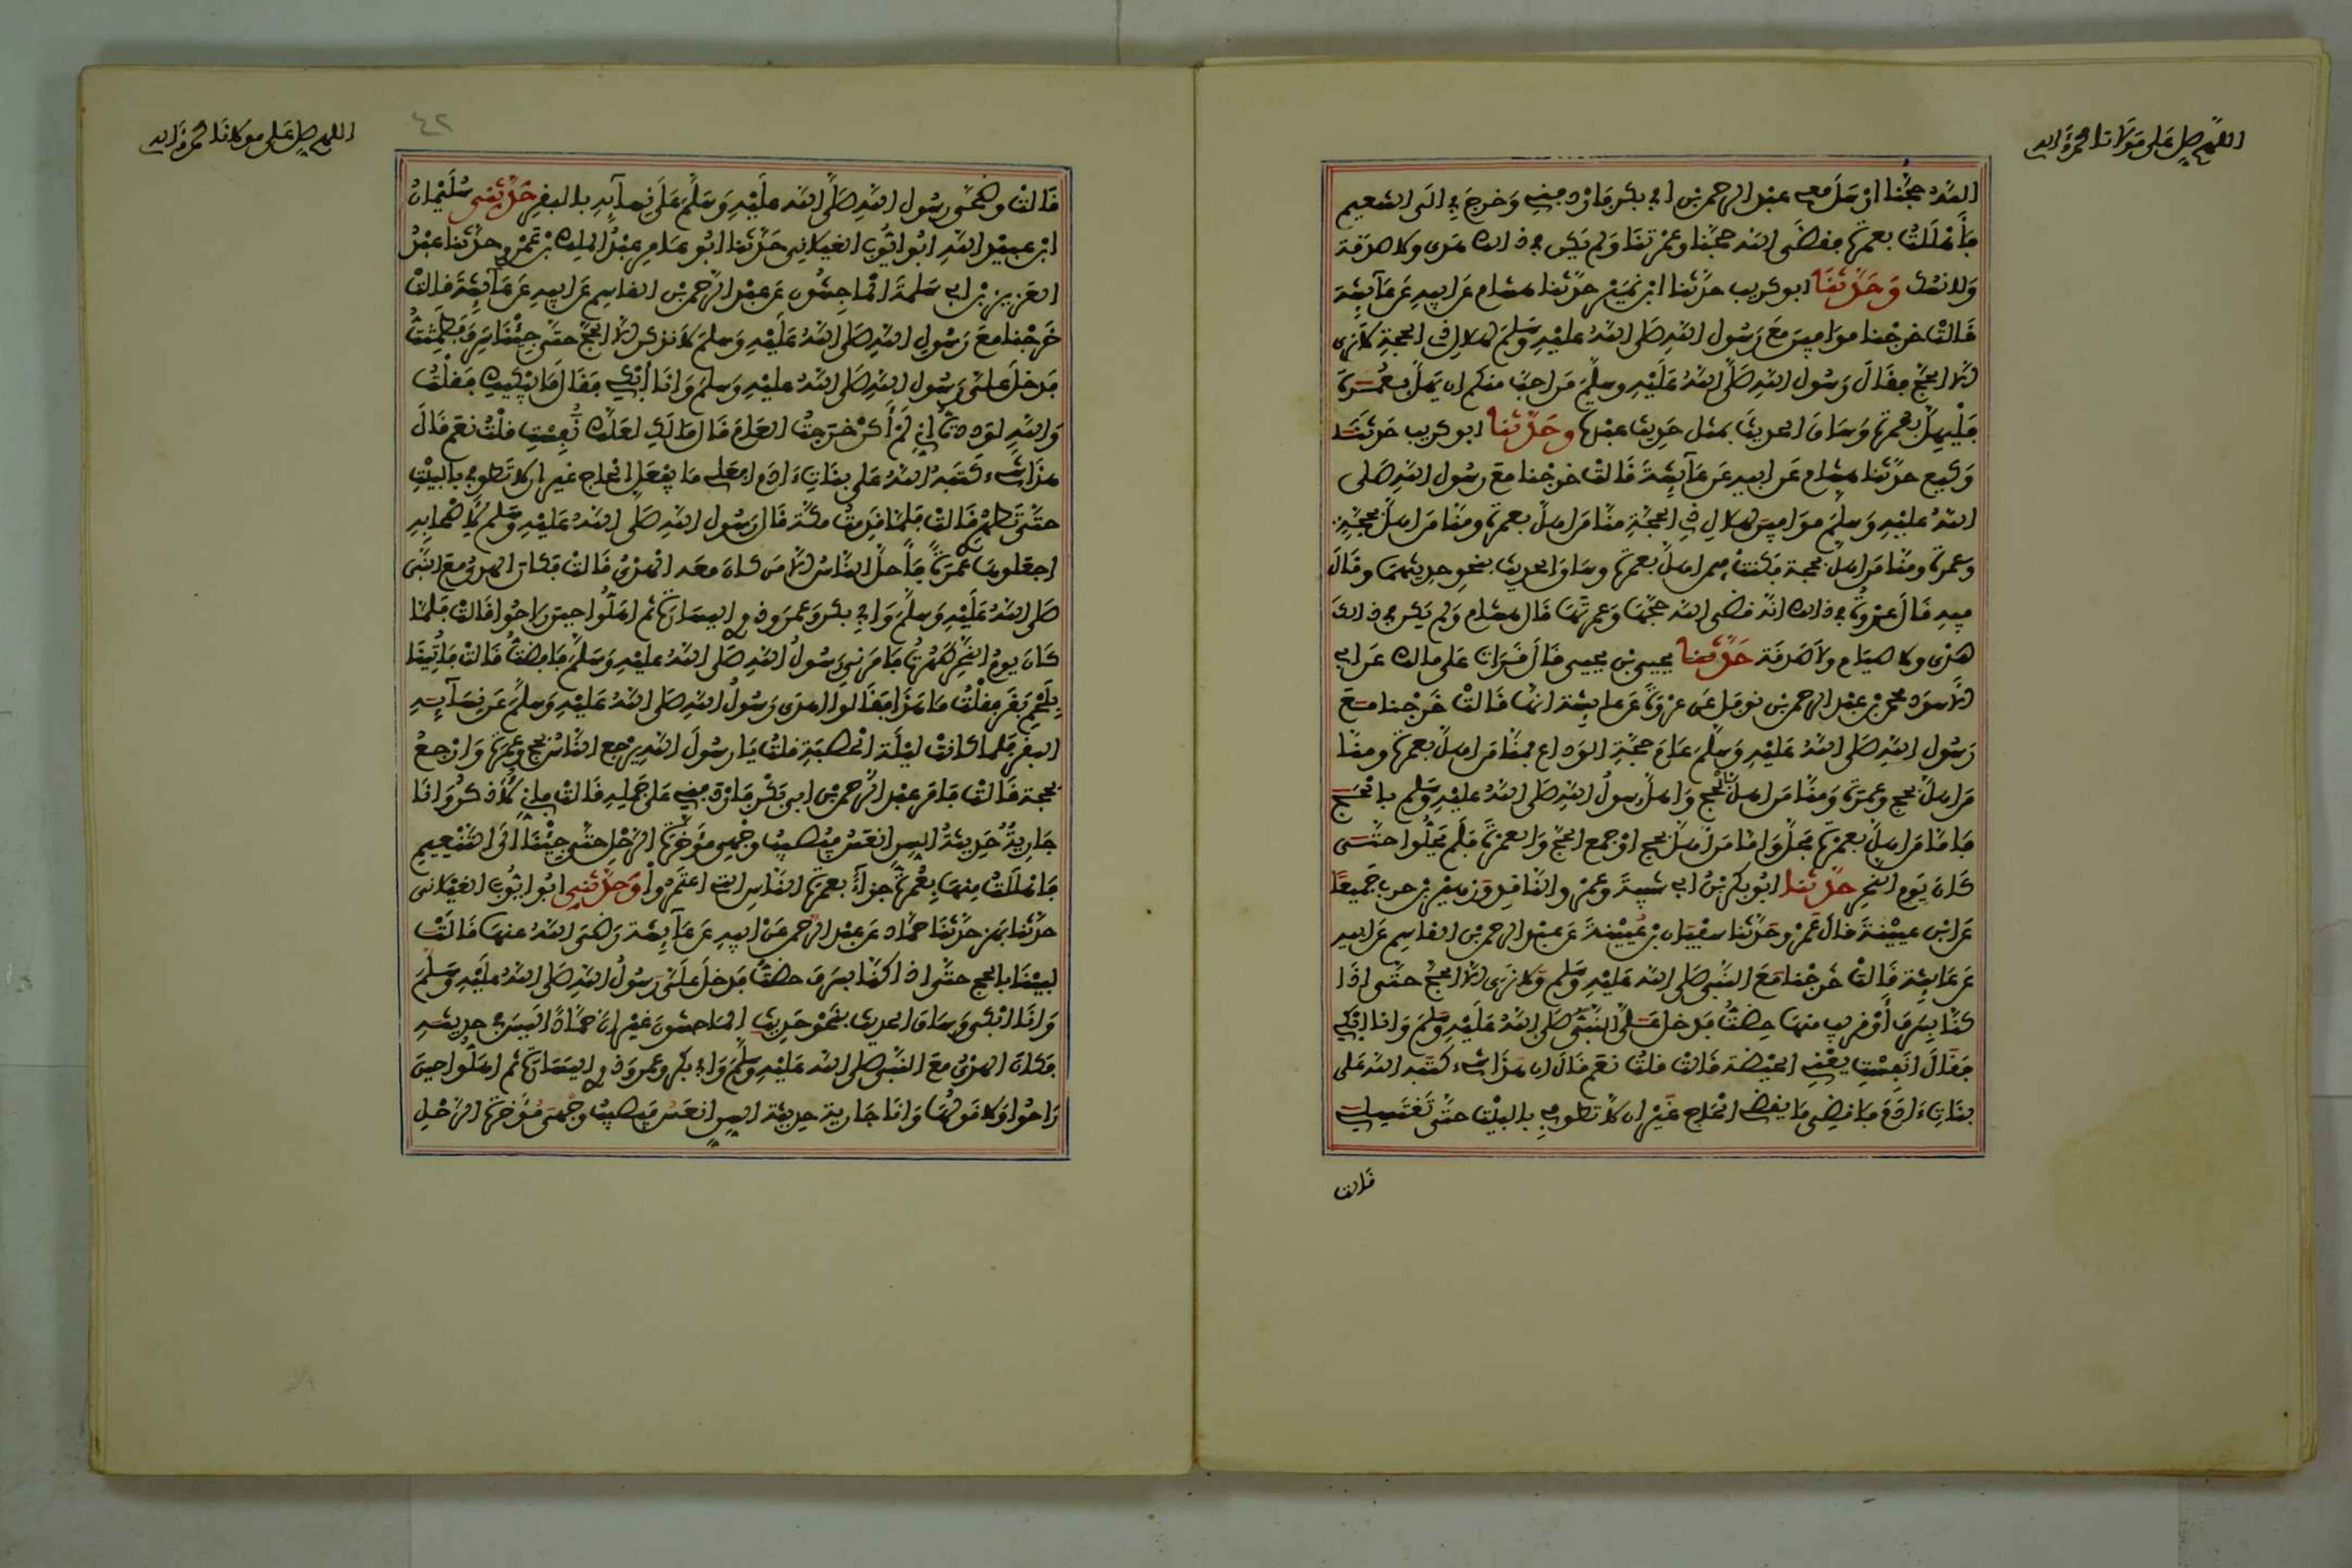 اللهم صل على مولانا محمد وآله
الله حجنا ارسل معي عبد الرحمن بن ابي بكر فاردفني وخرج بي الى التنعيم
فأهللت بعمرة فقضى الله حجنا وعمرتنا ولم يكن في ذلك هدى ولا صدقة
ولا نسك وحدثنا ابو كريب حدثنا ابن نمير حدثنا هشام عن ابيه عن عائشة
قالت خرجنا موافين مع رسول الله صلى الله عليه وسلم لهلال ذي الحجة لا نرى
الا الحج فقال رسول الله صلى الله عليه وسلم من احب منكم ان يهل بعمرة
فليهل بعمرة وساق الحديث بمثل حديث عبدة وحدثنا ابو كريب حدثنا
وكيع حدثنا هشام عن ابيه عن عائشة قالت خرجنا مع رسول الله صلى
الله عليه وسلم موافين لهلال ذي الحجة منا من اهل بعمرة ومنا من اهل بحجة
وعمرة ومنا من اهل بحجة فكنت فيمن اهل بعمرة وساق الحديث بنحو حديثهما وقال
فيه قال عروة في ذلك انه قضى الله حجها وعمرتها قال هشام ولم يكن في ذلك
هدى ولا صيام ولا صدقة حدثنا يحيى بن يحيى قال قرات على مالك عن ابي
الاسود محمد بن عبد الرحمن بن نوفل عن عروة عن عايشة انها قالت خرجنا مع
رسول الله صلى الله عليه وسلم عام حجة الوداع فمنا من اهل بعمرة ومنا
من اهل بحج وعمرة ومنا من اهل بالحج واهل رسول الله صلى الله عليه وسلم بالحج
فاما من اهل بعمرة فحل واما من اهل بحج او جمع الحج والعمرة فلم يحلوا حتى
كان يوم النحر حدثنا ابو بكر بن ابي شيبة وعمرو الناقد وزهير بن حرب جميعا
عن ابن عيينة قال عمرو حدثنا سفيان بن عيينة عن عبد الرحمن بن القاسم عن ابيه
عن عايشة قالت خرجنا مع النبي صلى الله عليه وسلم ولا نرى الا الحج حتى اذا
كنا بسرف أو قريب منها حضت فدخل علي النبي صلى الله عليه وسلم وانا ابكي
فقال انفست يعني الحيضة قالت قلت نعم قال ان هذا شيء كتبه الله على
بنات ءادم فاقضي ما يقضي الحاج غير ان لا تطوفي بالبيت حتى تغتسلي
قالت
اللهم صل على مولانا محمد وآله
٤٢
قالت وضحى رسول الله صلى الله عليه وسلم على نسآيه بالبقر حدثني سليمان
ابن عبيد الله ابو ايوب الغيلاني حدثنا ابو عامر عبد الملك بن عمرو حدثنا عبد
العزيز بن ابي سلمة الماجشون عن عبد الرحمن بن القاسم عن ابيه عن عآيشة قالت
خرجنا مع رسول الله صلى الله عليه وسلم لا نذكر الا الحج حتى جئنا سرف فطمثت
فدخل علي رسول الله صلى الله عليه وسلم وانا أبكي فقال ما يبكيك فقلت
والله لوددت اني لم أكن خرجت العام قال ما لك لعلك نفست قلت نعم قال
هذا شيء كتبه الله على بنات ءادم افعلي ما يفعل الحاج غير ان لا تطوفي بالبيت
حتى تطهري قالت فلما قدمت مكة قال رسول الله صلى الله عليه وسلم لاصحابه
اجعلوها عمرة فأحل الناس الا من كان معه الهدي قالت فكان الهدي مع النبي
صلى الله عليه وسلم وابي بكر وعمر وذوي اليسارة ثم اهلوا حين راحوا قالت فلما
كان يوم النحر طهرت فامرني رسول الله صلى الله عليه وسلم فافضت قالت فأتينا
بلحم بقر فقلت ما هذا فقالوا اهدى رسول الله صلى الله عليه وسلم عن نسآيه
البقر فلما كانت ليلة الحصبة قلت يا رسول الله يرجع الناس بحج وعمرة وارجع
بحجة قالت فامر عبد الرحمن بن ابي بكر فاردفني على جمله قالت فاني لأذكر وانا
جارية حديثة السن انعس فيصيب وجهي مؤخرة الرحل حتى جئنا الى التنعيم
فاهللت منها بعمرة جزاء بعمرة الناس التي اعتمروا وحدثني ابو ايوب الغيلاني
حدثنا بهز حدثنا حماد عن عبد الرحمن عن ابيه عن عآيشة رضي الله عنها قالت
لبينا بالحج حتى اذا كنا بسرف حضت فدخل علي رسول الله صلى الله عليه وسلم
وانا ابكي وساق الحديث بنحو حديث الماجشون غير ان حمادا ليس في حديثه
فكان الهدي مع النبي صلى الله عليه وسلم وابي بكر وعمر وذوي اليسارة ثم اهلوا حين
راحوا ولا قولها وانا جارية حديثة السن انعس فيصيب وجهي مؤخرة الرحل